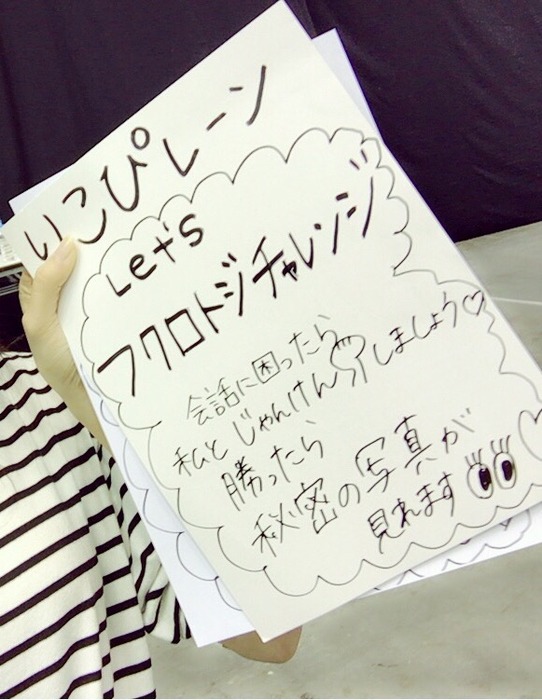 りこぴレーン
Let's
フクロトジチャレンジ
会話に困ったら
私とじゃんけんしましょう♡
勝ったら
秘密の写真が
見れます